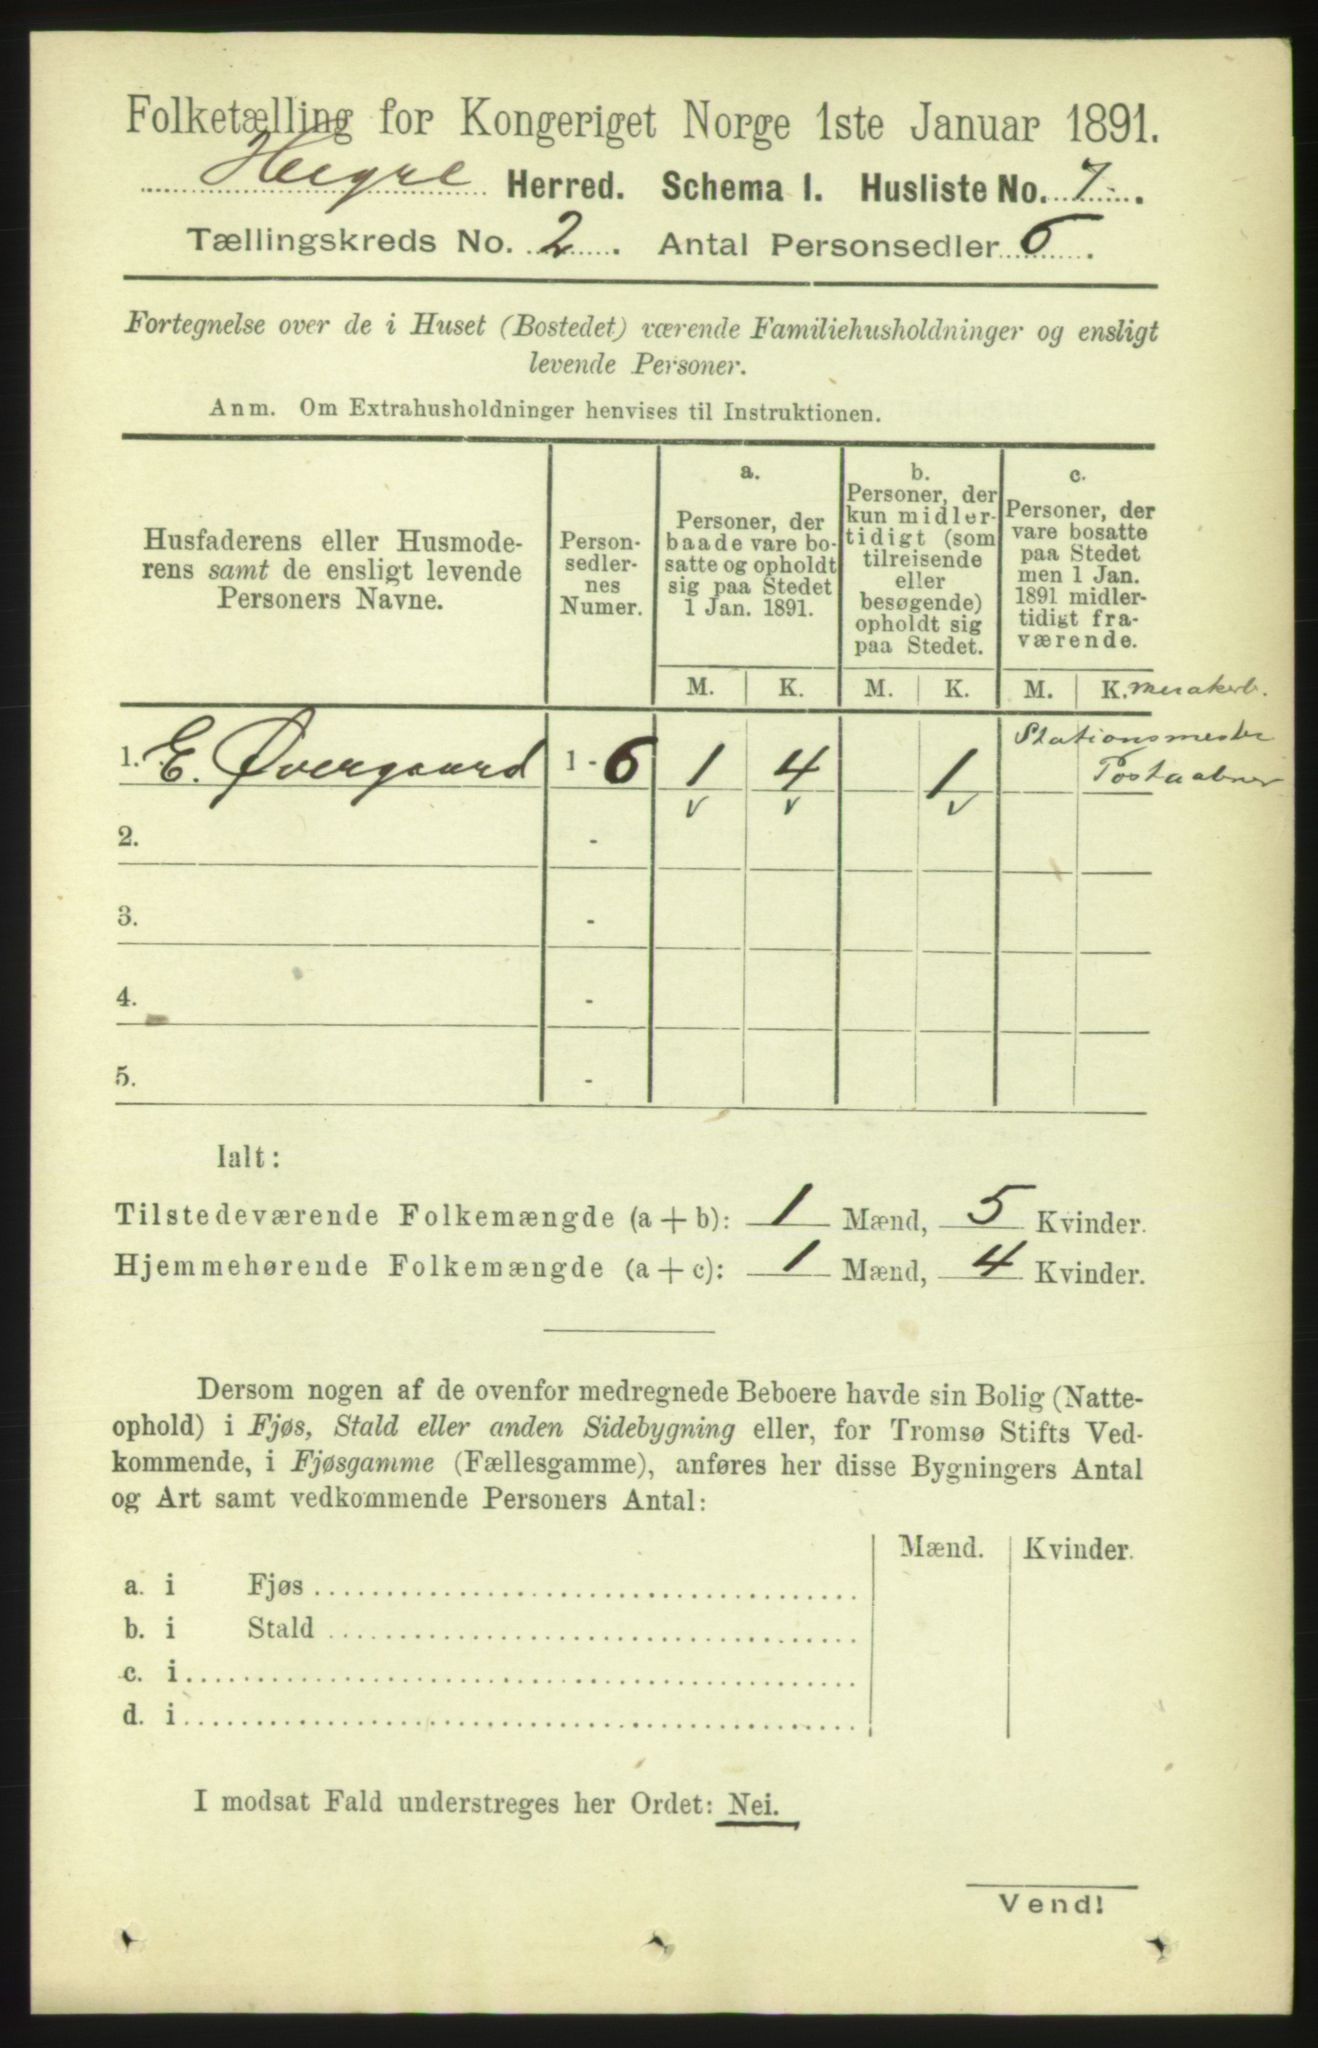 Folketælling for Kongeriget Norge 1ste Januar 1891.
Hegre Herred. Schema 1. Husliste No. 7.
Tællingskreds No. 2. Antal Personsedler 6.
Fortegnelse over de i Huset (Bostedet) værende Familiehusholdninger og ensligt
levende Personer.
Anm. Om Extrahusholdninger henvises til Instruktionen.
Husfaderens eller Husmode-
rens samt de ensligt levende
Personers Navne.
Person-
sedler-
nes
Numer.
a.
Personer, der
baade vare bo-
satte og opholdt
sig paa Stedet
1 Jan. 1891.
b.
Personer, der
kun midler-
tidigt (som
tilreisende
eller
besøgende)
opholdt sig
paa Stedet.
c.
Personer, der
vare bosatte
paa Stedet
men 1 Jan.
1891 midler-
tidigt fra-
værende.
M. K. M. K. M. K. Merakerb.
Stationsmester
1. E. Øvergaard 1 - 6 1 4 1 Postaabner
v v v
2. -
3. -
4. -
5. -
Ialt:
Tilstedeværende Folkemængde (a + b): 1 Mænd, 5 Kvinder.
Hjemmehørende Folkemængde (a + c): 1 Mænd, 4 Kvinder.
Dersom nogen af de ovenfor medregnede Beboere havde sin Bolig (Natte-
ophold) i Fjøs, Stald eller anden Sidebygning eller, for Tromsø Stifts Ved-
kommende, i Fjøsgamme (Fællesgamme), anføres her disse Bygningers Antal
og Art samt vedkommende Personers Antal:
Mænd. Kvinder.
a. i Fjøs
b. i Stald
c. i
d. i
I modsat Fald understreges her Ordet: Nei.
Vend!